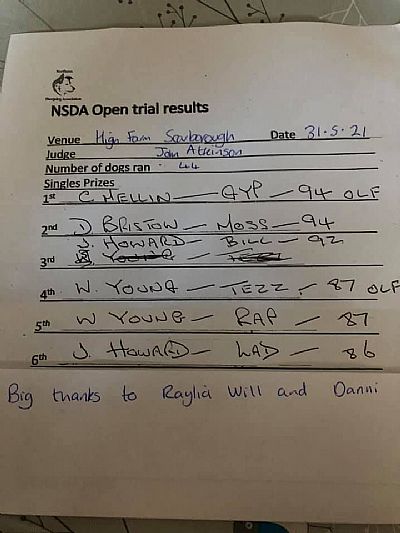 Northern
Sheepdog Association
NSDA Open trial results
Venue High Farm Scarborough Date 31.5.21
Judge John Atkinson
Number of dogs ran 44
Singles Prizes
1st C MELLIN — GYP — 94 OLF
2nd D BRISTOW — MOSS — 94
J. HOWARD — BILL — 92
3rd W YOUNG — TEZZ
4th W. YOUNG — TEZZ. 87 OLF
5th W YOUNG — RAP — 87
6th J. HOWARD — LAD — 86
Big thanks to Raylia Will and Danni